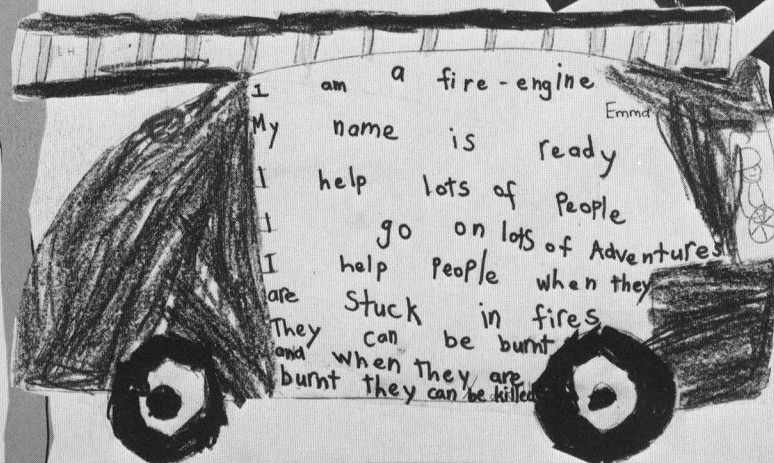 I am a fire-engine
Emma
My name is ready
I help lots of People
I go on lots of Adventures
I help People when they
are Stuck in fires
They can be burnt
and when they are
burnt they can be killed